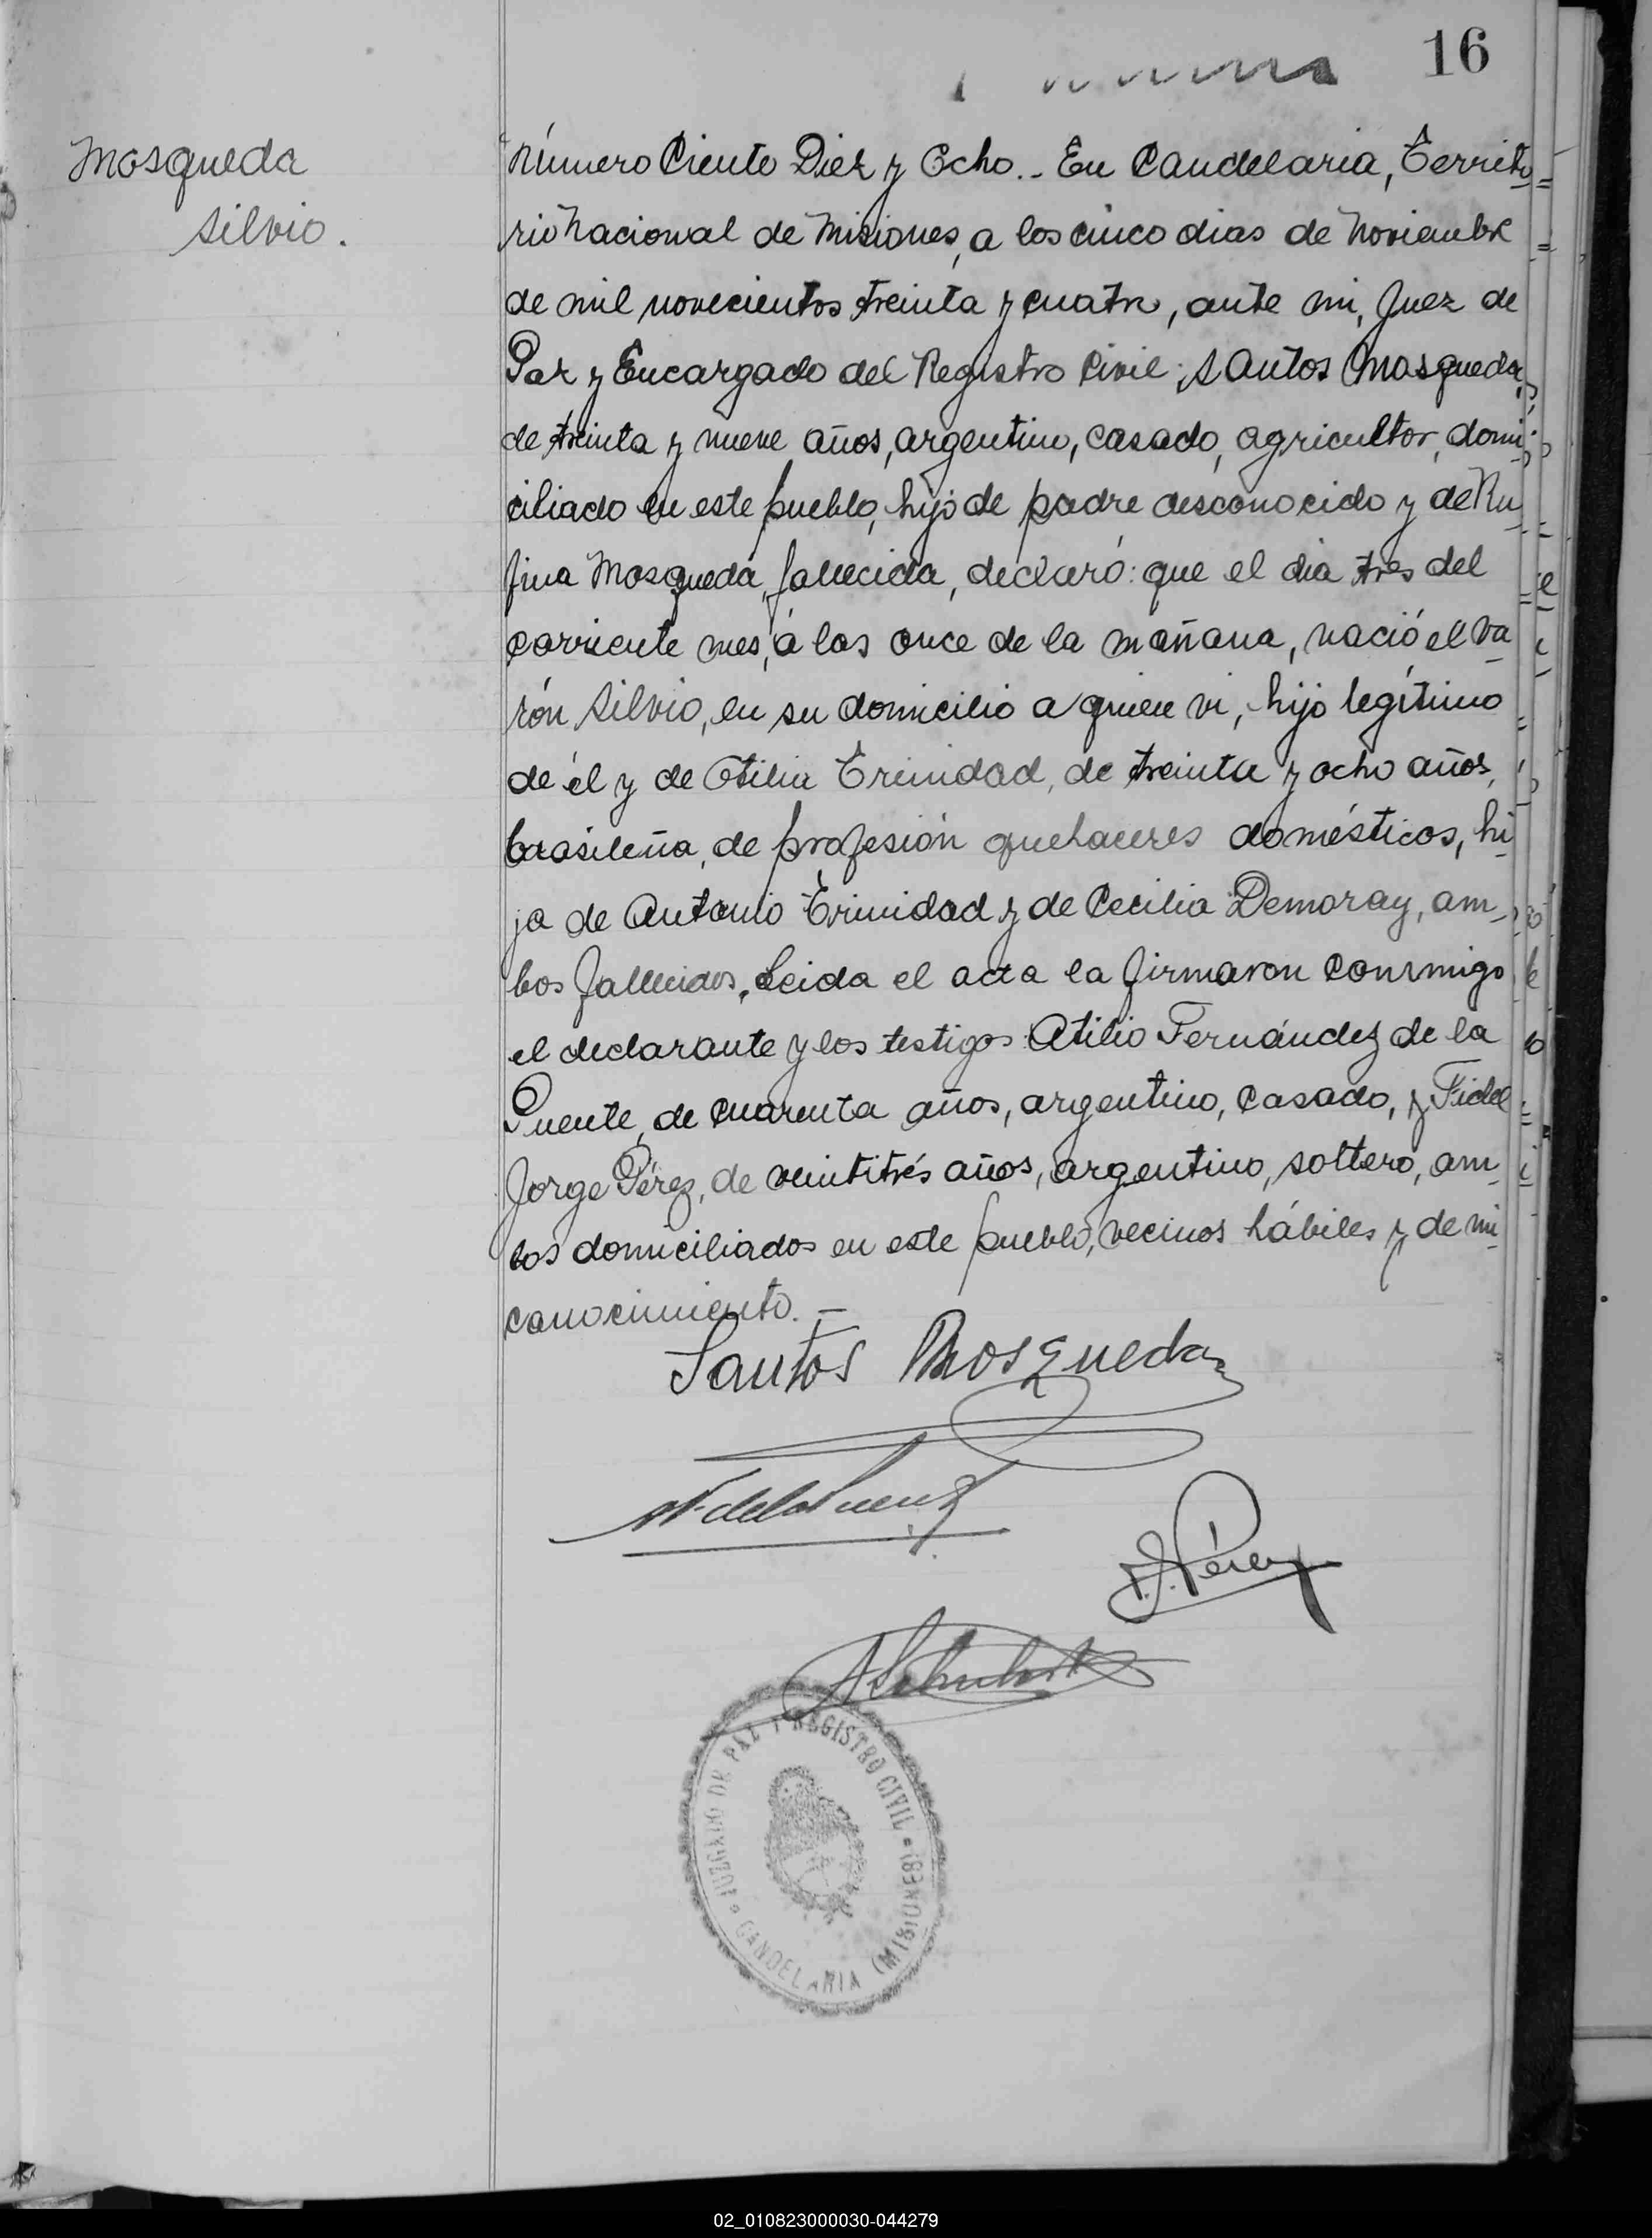 16
Mosqueda
Silvio.
Número Ciento Diez y Ocho.. En Candelaria, Territo
rio Nacional de Misiones, a los cinco dias de Noviembre
de mil novecientos treinta y cuatro, ante mi, Juez de
Paz y Encargado del Registro Civil; Santos Mosqueda,
de treinta y nueve años, argentino, casado, agricultor, domi
ciliado en este pueblo, hijo de padre desconocido y de Ru
fina Mosqueda, fallecida, declaró: que el dia tres del
corriente mes, a las once de la mañana, nació el va
rón Silvio, en su domicilio a quien vi, hijo legítimo
de él y de Otilia Trinidad, de treinta y ocho años,
brasileña, de profesión quehaceres domésticos, hi
ja de Antonio Trinidad y de Cecilia Demoray, am
bos fallecidos. Leida el acta la firmaron conmigo
el declarante y los testigos Atilio Fernández de la
Puente, de cuarenta años, argentino, casado, y Fidel
Jorge Pérez, de veintitrés años, argentino, soltero, am
bos domiciliados en este pueblo, vecinos hábiles y de mi
conocimiento. —
Santos Mosqueda
F. J. Pérez
JUZGADO DE PAZ Y REGISTRO CIVIL
CANDELARIA (MISIONES)
02_010823000030-044279